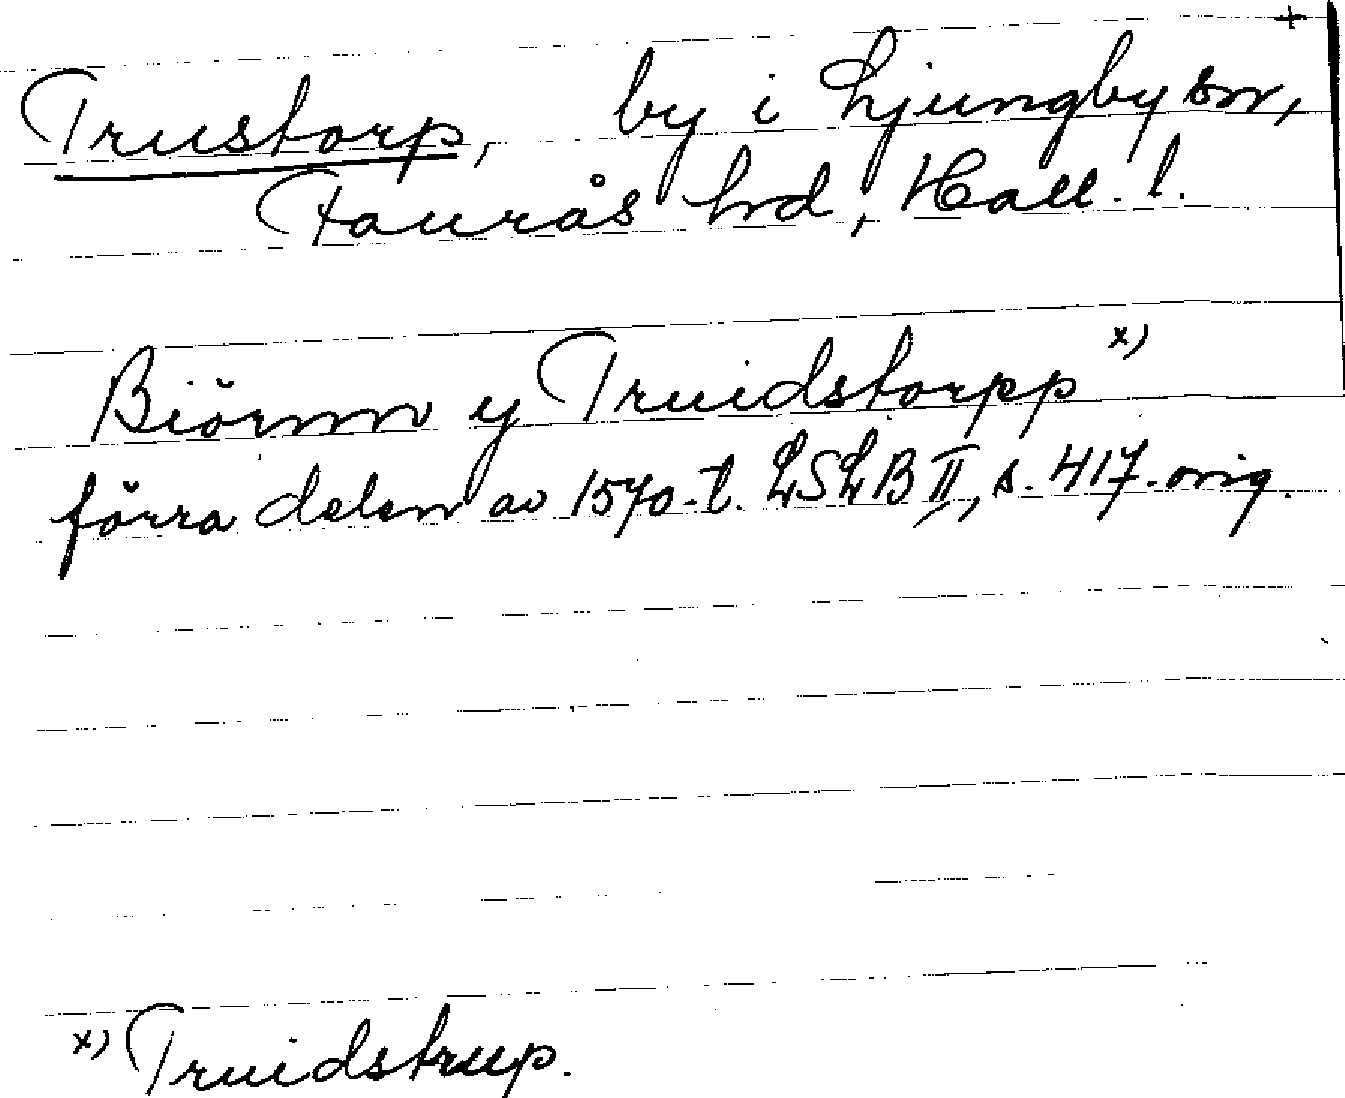 +
Trustorp, by i Ljungby sn,
Faurås hrd, Hall. l.
Biörnn y Truidstorpp x)
förra delen av 1570-t. LSLB II, s. 417. orig.
x) Truidstrup.